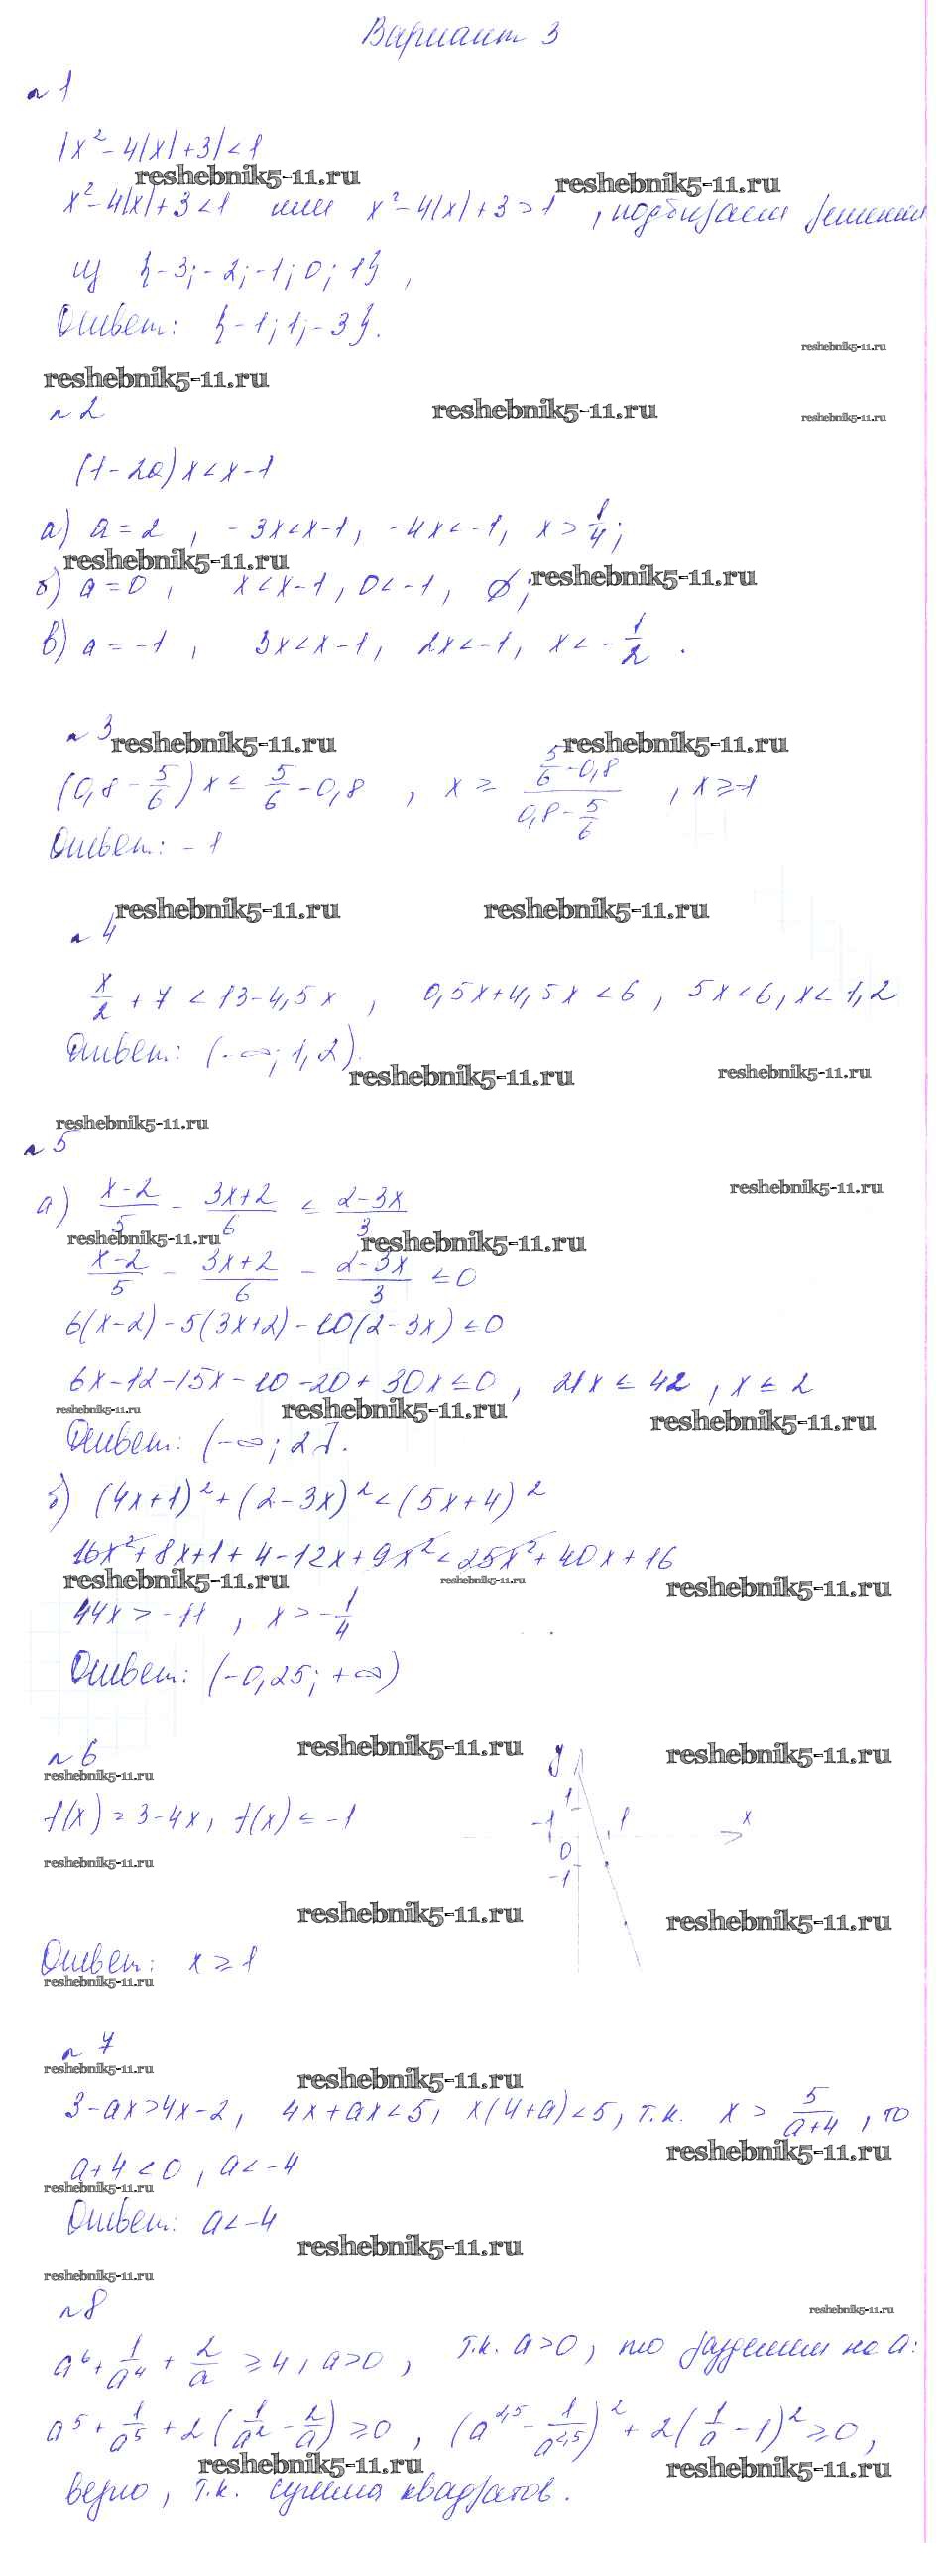 Вариант 3
№1
|x² - 4|x| + 3| < 1
reshebnik5-11.ru reshebnik5-11.ru
x² - 4|x| + 3 < 1 или x² - 4|x| + 3 > 1 , подбираем решения
из {-3; -2; -1; 0; 1} ,
Ответ: {-1; 1; -3}.
reshebnik5-11.ru
reshebnik5-11.ru
№2 reshebnik5-11.ru reshebnik5-11.ru
(1 - 2a)x < x - 1
а) a = 2 , -3x < x - 1, -4x < -1, x > 1/4;
reshebnik5-11.ru reshebnik5-11.ru
б) a = 0 , x < x - 1, 0 < -1, ∅;
в) a = -1 , 3x < x - 1, 2x < -1, x < -1/2 .
№3 reshebnik5-11.ru reshebnik5-11.ru
(0,8 - 5/6)x ≤ 5/6 - 0,8 , x ≥ (5/6 - 0,8)/(0,8 - 5/6) , x ≥ -1
Ответ: -1
reshebnik5-11.ru reshebnik5-11.ru
№4
x/2 + 7 < 13 - 4,5x , 0,5x + 4,5x < 6 , 5x < 6, x < 1,2
Ответ: (-∞; 1,2).
reshebnik5-11.ru reshebnik5-11.ru
reshebnik5-11.ru
№5
reshebnik5-11.ru
а) (x-2)/5 - (3x+2)/6 ≤ (2-3x)/3
reshebnik5-11.ru reshebnik5-11.ru
(x-2)/5 - (3x+2)/6 - (2-3x)/3 ≤ 0
6(x-2) - 5(3x+2) - 10(2-3x) ≤ 0
6x - 12 - 15x - 10 - 20 + 30x ≤ 0 , 21x ≤ 42 , x ≤ 2
reshebnik5-11.ru reshebnik5-11.ru reshebnik5-11.ru
Ответ: (-∞; 2].
б) (4x+1)² + (2-3x)² < (5x+4)²
16x² + 8x + 1 + 4 - 12x + 9x² < 25x² + 40x + 16
reshebnik5-11.ru reshebnik5-11.ru reshebnik5-11.ru
44x > -11 , x > -1/4
Ответ: (-0,25; +∞)
№6 reshebnik5-11.ru y reshebnik5-11.ru
reshebnik5-11.ru
f(x) = 3 - 4x, f(x) ≤ -1 1 -1 1 x
0
-1
reshebnik5-11.ru
reshebnik5-11.ru reshebnik5-11.ru
Ответ: x ≥ 1
reshebnik5-11.ru
№7
reshebnik5-11.ru reshebnik5-11.ru
3 - ax > 4x - 2, 4x + ax < 5, x(4+a) < 5, т.к. x > 5/(a+4) , то
reshebnik5-11.ru
a + 4 < 0 , a < -4
reshebnik5-11.ru
Ответ: a < -4
reshebnik5-11.ru
reshebnik5-11.ru
№8 reshebnik5-11.ru
a⁶ + 1/a⁴ + 2/a ≥ 4, a > 0 , т.к. a > 0 , то разделим на a:
a⁵ + 1/a⁵ + 2(1/a² - 2/a) ≥ 0 , (a^2,5 - 1/a^2,5)² + 2(1/a - 1)² ≥ 0 ,
reshebnik5-11.ru reshebnik5-11.ru
верно , т.к. сумма квадратов.